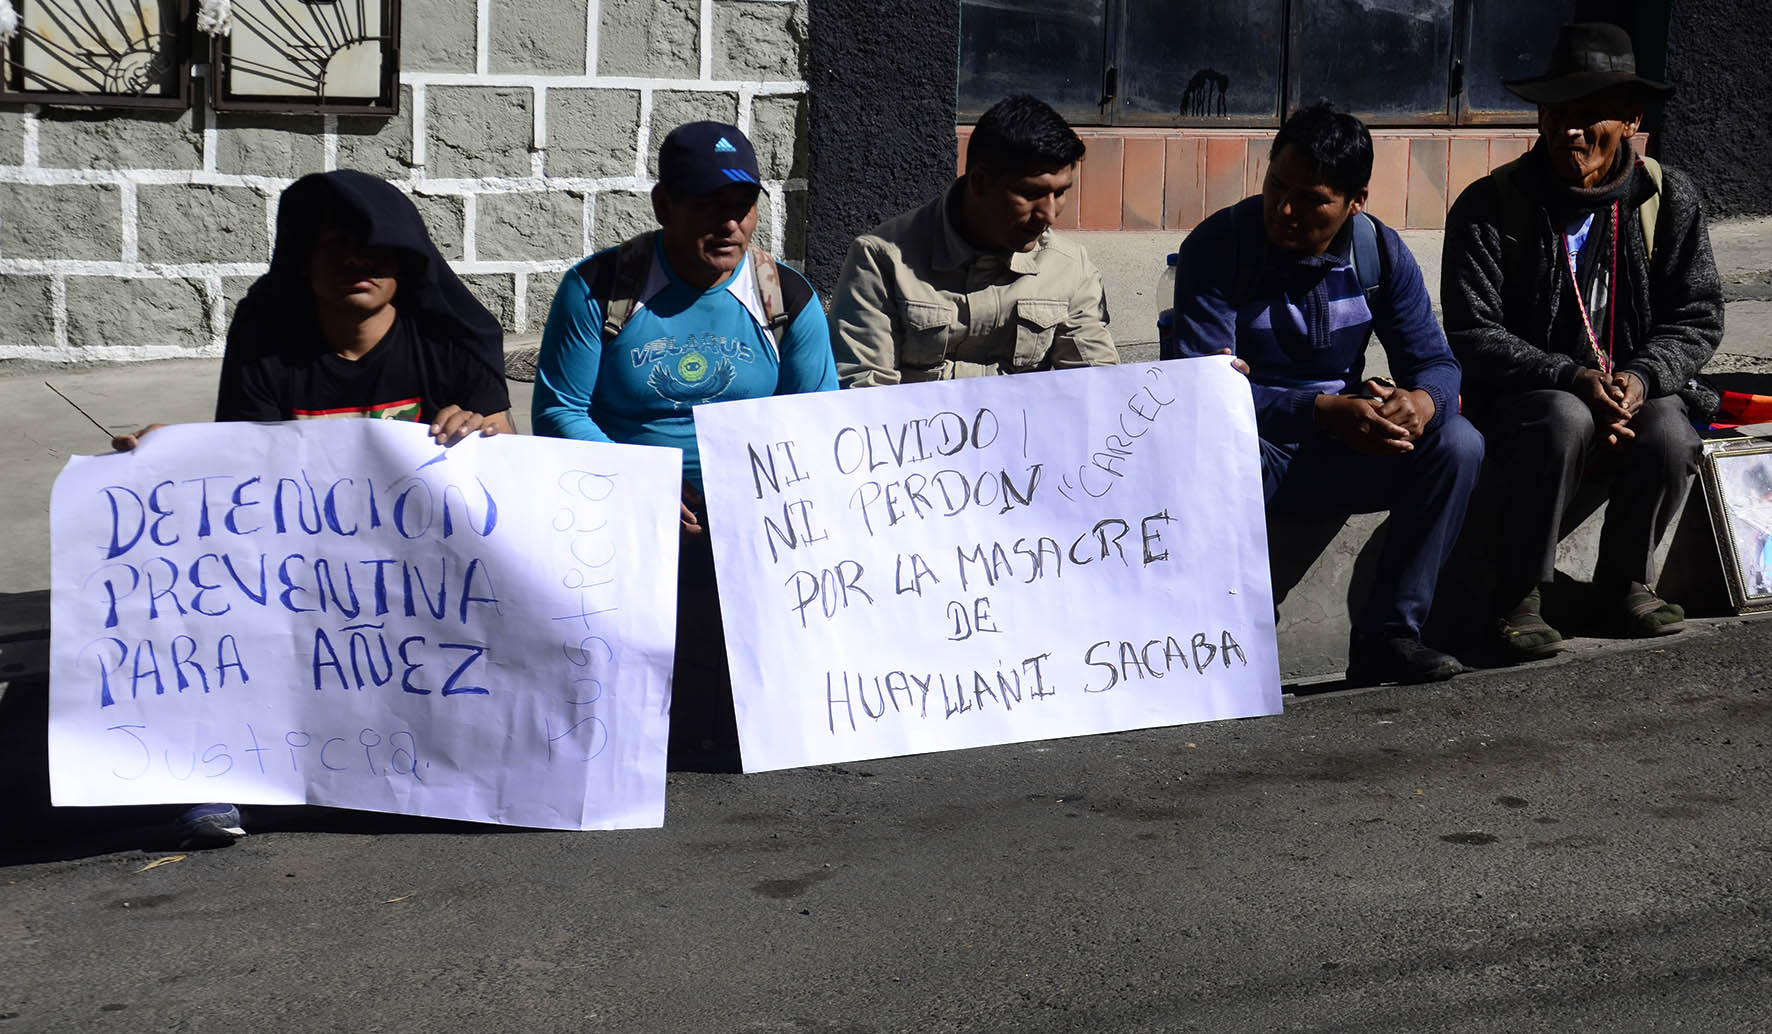 DETENCIÓN
PREVENTIVA
PARA AÑEZ
Justicia.
Justicia
VELARUS
NI OLVIDO
NI PERDON "CARCEL"
POR LA MASACRE
DE
HUAYLLAÑI SACABA